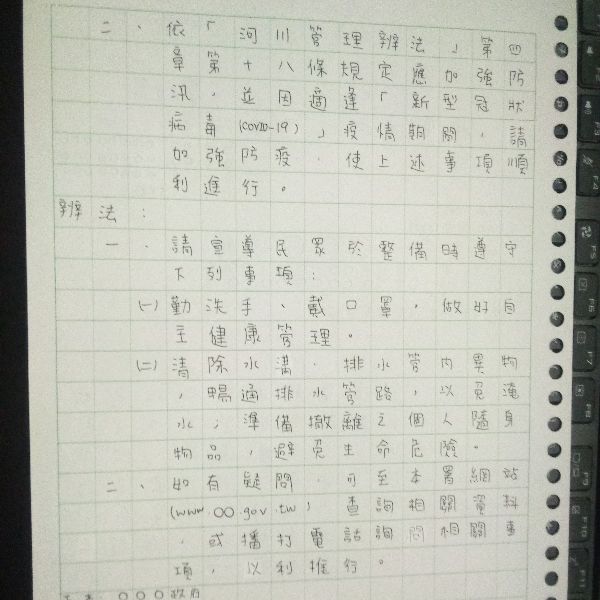 二、依「河川管理辦法」第四
章第十八條規定應加強防
汛，並因適逢「新型冠狀
病毒(COVID-19)」疫情期間，請
加強防疫，使上述事項順
利進行。
辦法：
一、請宣導民眾於整備時遵守
下列事項：
(一)勤洗手、戴口罩，做好自
主健康管理。
(二)清除水溝、排水管內異物
，暢通排水管路，以免淹
水；準備撤離之個人隨身
物品，避免生命危險。
二、如有疑問，可至本署網站
(www.OO.gov.tw) 查詢相關資料
，或撥打電話詢問相關事
項，以利推行。
正本：○○○政府
F4
F5
F6
F7
F8
F9
F10
F11